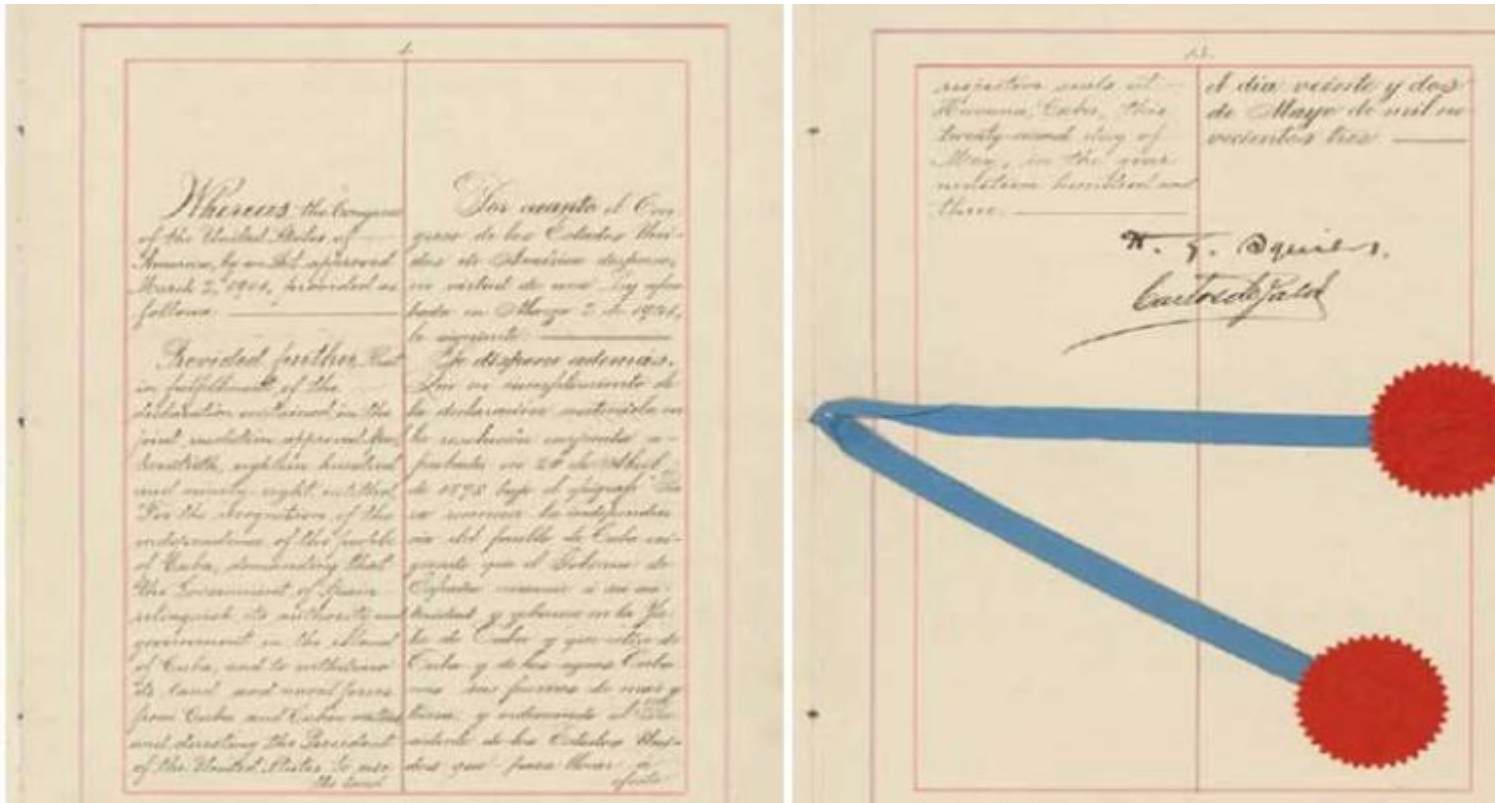 1.
Whereas the Congress
of the United States of
America, by an Act approved
March 2, 1901, provided as
follows:
Provided further, That
in fulfillment of the
declaration contained in the
joint resolution approved
twentieth, eighteen hundred
and ninety-eight, entitled
"For the recognition of the
independence of the people
of Cuba, demanding that
the Government of Spain
relinquish its authority and
government in the island
of Cuba, and to withdraw
its land and naval forces
from Cuba and Cuban waters
and directing the President
of the United States to use
the land
Por cuanto el Con-
greso de los Estados Uni-
dos de América dispuso,
en virtud de una ley apro-
bada en Marzo 2 de 1901,
lo siguiente:
Se dispone además,
Que en cumplimiento de
la declaración contenida en
la resolución conjunta a-
probada en 20 de Abril
de 1898 bajo el epígrafe
la independen-
cia del pueblo de Cuba exi-
giendo que el Gobierno de
España renuncie a su au-
toridad y gobierno en la Is-
la de Cuba y que retire de
Cuba y de las aguas Cuba-
nas sus fuerzas de mar y
tierra y ordenando al Pre-
sidente de los Estados Uni-
dos que para llevar a
efecto
13.
respective seals at
Havana, Cuba, this
twenty-second day of
May, in the year
nineteen hundred and
three.
el dia veinte y dos
de Mayo de mil no-
vecientos tres
H. G. Squiers.
Carlos de Zaldo